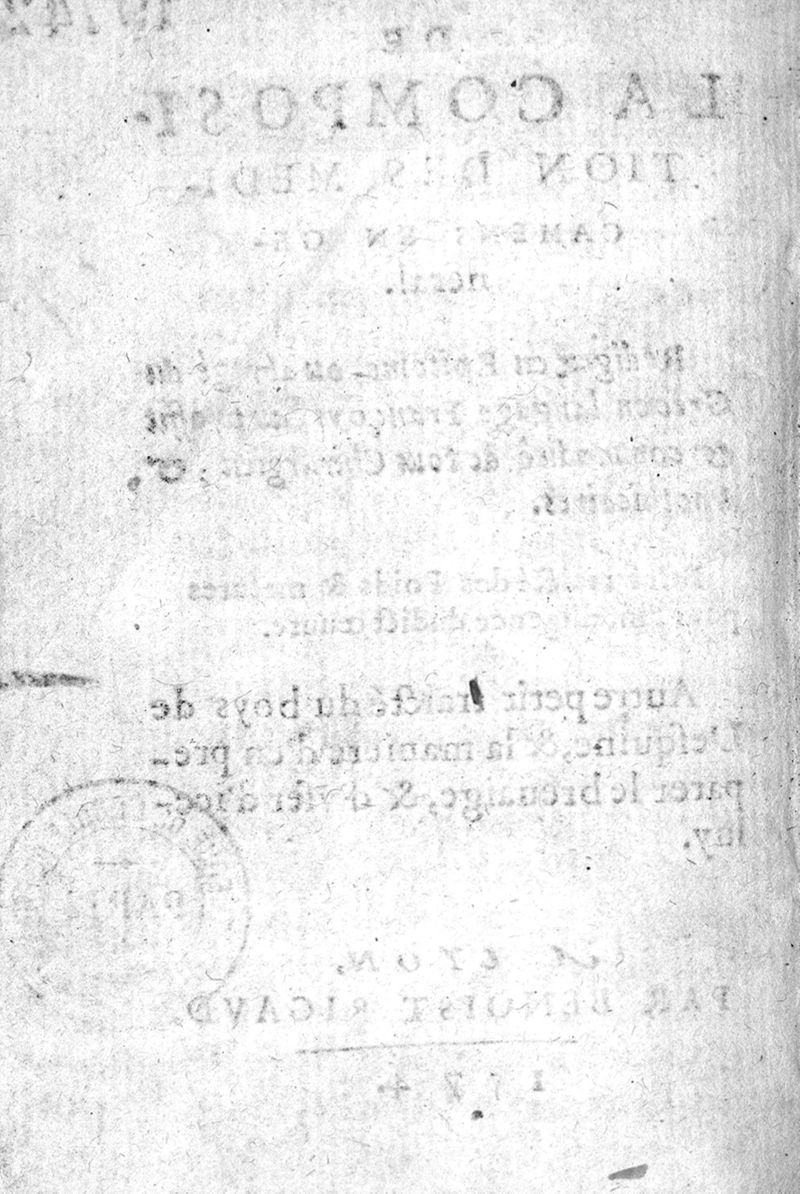 DE
LA COMPOSI-
TION DES MEDI-
CAMENS EN GE-
neral.
Redigee en Epitome, ou abregé du
Grec en langage François
commodité de tous Chirurgiens, &
Apoticaires.
Petit traicté des Poids & mesures
pour intelligence dudict œuure.
Autre petit traicté du boys de
l'esquine, & la maniere d'en pre-
parer le breuuaige, & d'vser d'ice-
luy.
A LYON,
PAR BENOIST RIGAVD.
1574.